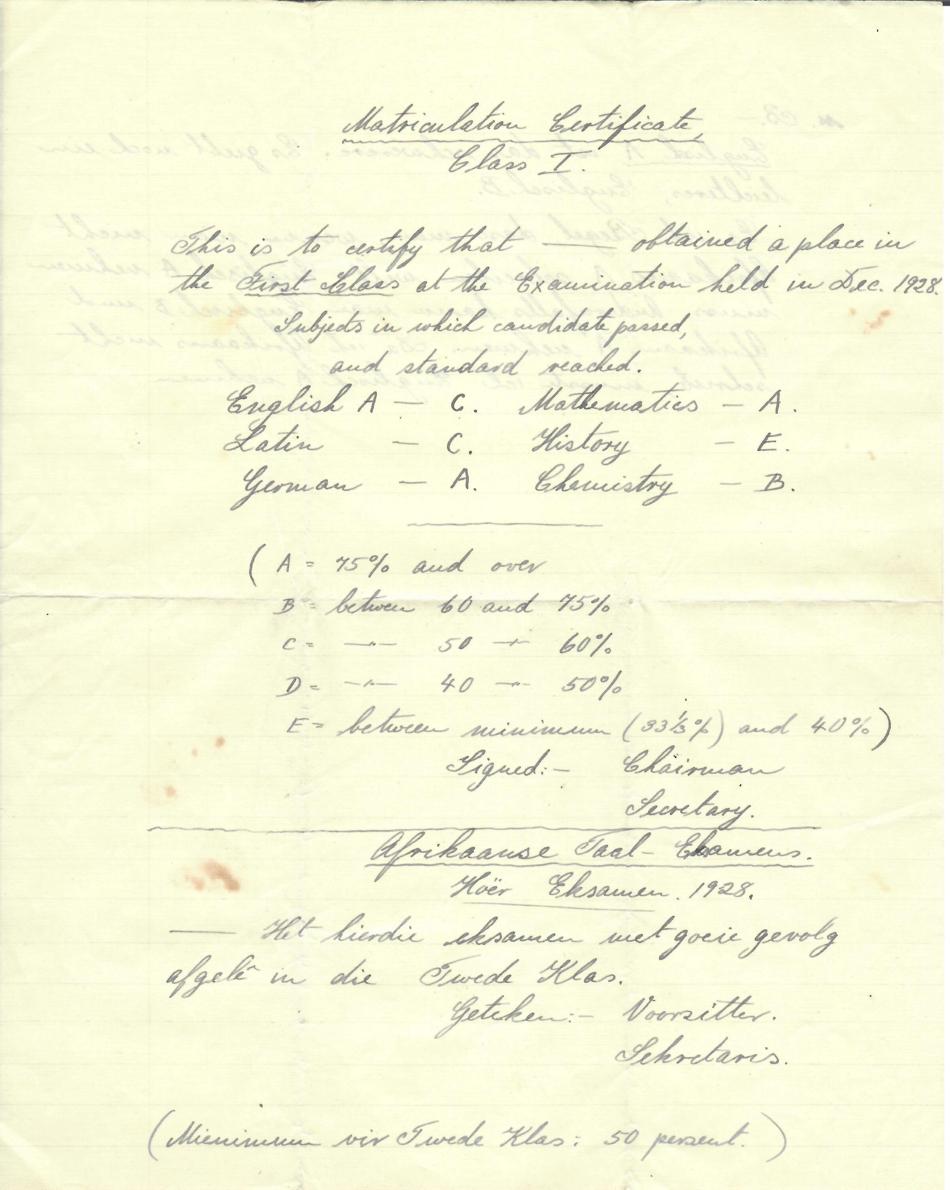 Matriculation Certificate,
Class I.
This is to certify that —— obtained a place in
the First Class at the Examination held in Dec. 1928.
Subjects in which candidate passed,
and standard reached.
English A — C. Mathematics — A.
Latin — C. History — E.
German — A. Chemistry — B.
(A = 75% and over
B = between 60 and 75%
C = —"— 50 —"— 60%
D = —"— 40 —"— 50%
E = between minimum (33⅓%) and 40%)
Signed:— Chairman
Secretary.
Afrikaanse Taal-Eksamens.
Hoër Eksamen. 1928.
—— Het hierdie eksamen met goeie gevolg
afgelê in die Twede Klas.
Geteken:— Voorsitter.
Sekretaris.
(Mienimum vir Twede Klas: 50 persent.)